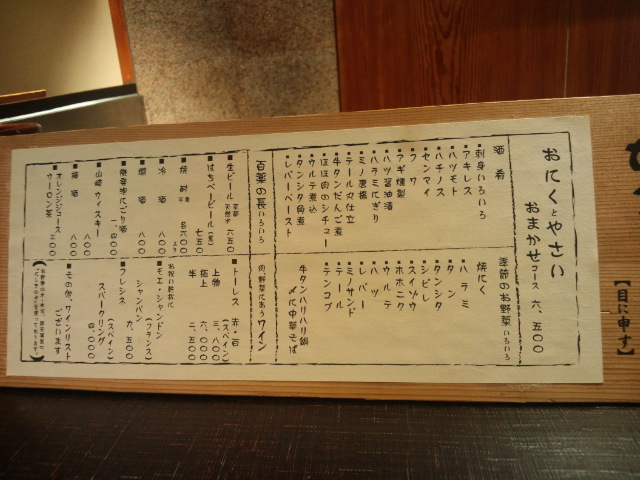 おにくとやさい
おまかせコース 六、五〇〇
酒肴
■刺身いろいろ
■アキレス
■ハツモト
■ハチノス
■センマイ
■フワ
■アギ燻製
■ハツ醤油漬
■ハラミにぎり
■ミノ唐揚
■テール丸仕立
■牛タンだんご煮
■ほほ肉のシチュー
■ウルテ煮込
■タンシタ角煮
■レバーペースト
季節のお野菜いろいろ
焼にく
■ハラミ
■タン
■タンシタ
■シビレ
■スイゾウ
■ホホニク
■ウルテ
■ハツ
■レバー
■ミノサンド
■テール
■テンコブ
牛タンハリハリ鍋
〆に中華そば
百薬の長いろいろ
■生ビール 六五〇
■はちベービール(黒) 七五〇
■焼酎 各六〇〇より
■冷酒 八〇〇
■燗酒 八〇〇
■にごり酒 四、〇〇〇
■山崎ウィスキー 八〇〇
■梅酒 八〇〇
■オレンジジュース
■ウーロン茶 三〇〇
肉野菜にあうワイン
■トーレス 赤・白
(スペイン)
上物 三、八〇〇
極上 六、〇〇〇
半 二、五〇〇
お祝い乾杯に
■モエ・シャンドン
(フランス)
シャンパン 九、五〇〇
■フレシネ
(スペイン)
スパークリング 四、〇〇〇
■その他、ワインリスト
ございます
【目に申す】